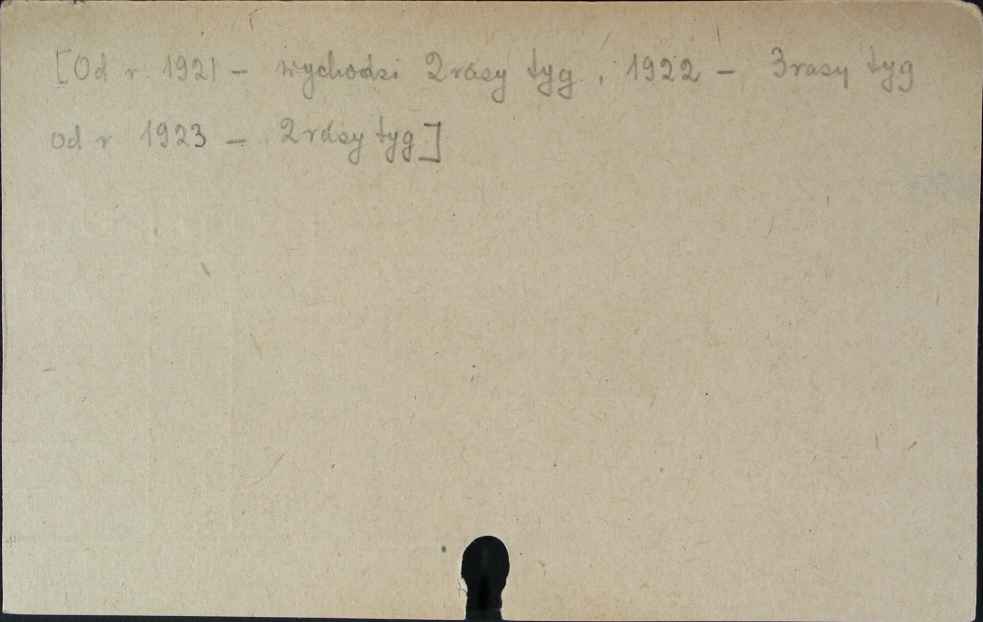 [Od r. 1921 – wychodzi 2 razy tyg, 1922 – 3 razy tyg
od r 1923 – 2 razy tyg]